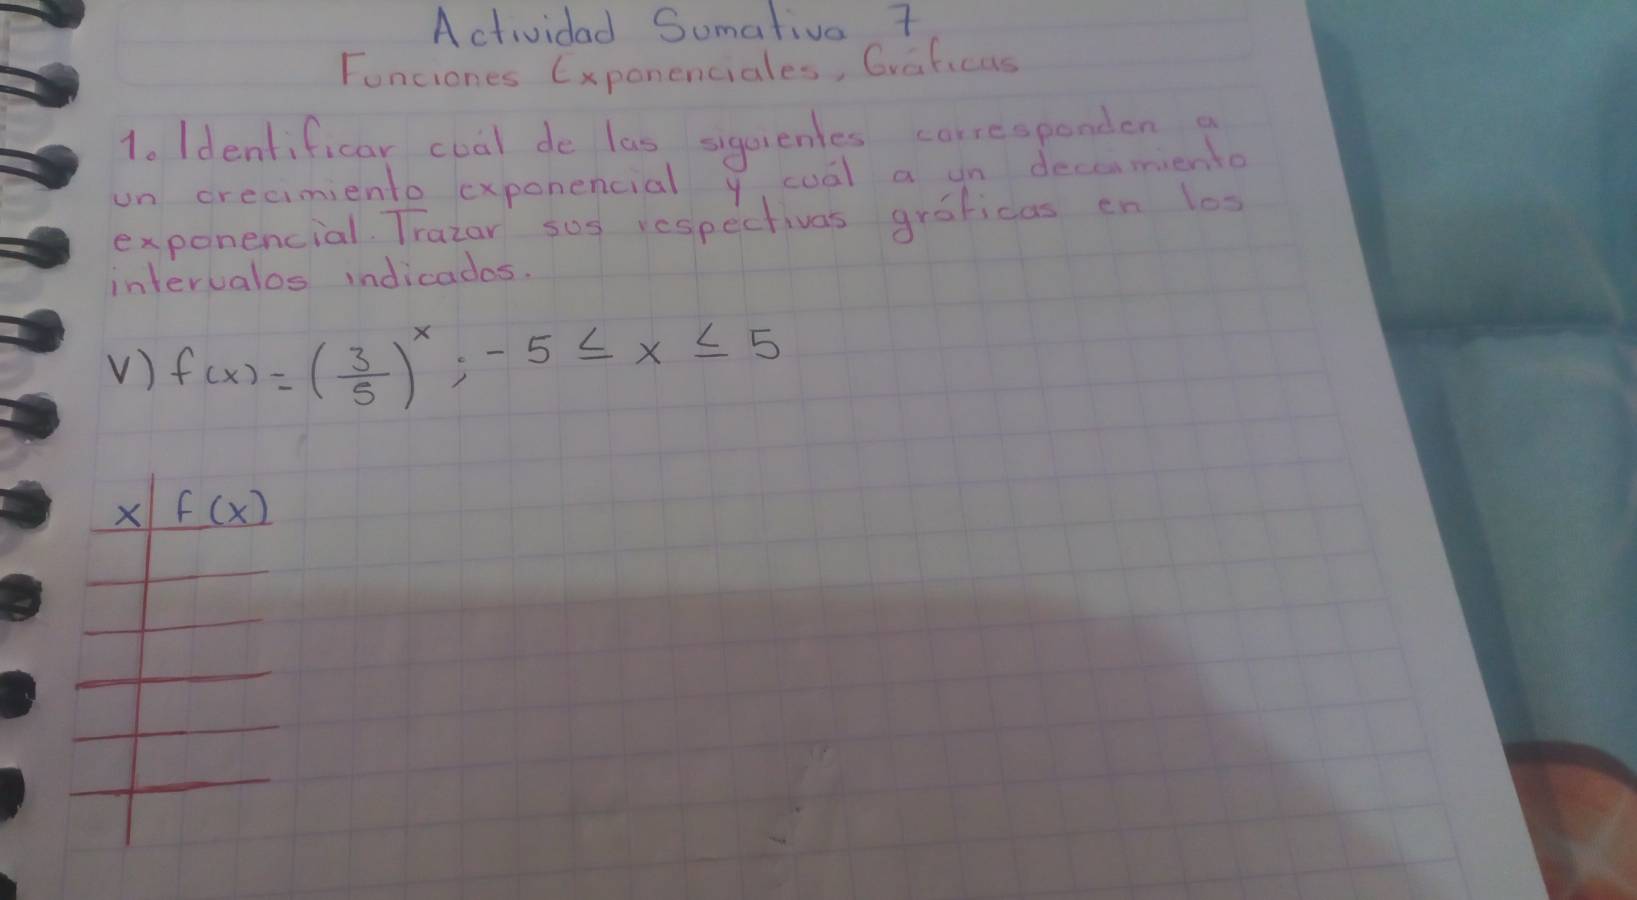 Actividad Sumativa 7
Funciones Exponenciales, Gráficas
1. Identificar cuál de las siguientes corresponden a
un crecimiento exponencial y cuál a un decaimiento
exponencial. Trazar sus respectivas gráficas en los
intervalos indicados.
V) f(x) = (3/5)^x ; -5 ≤ x ≤ 5
x | f(x)